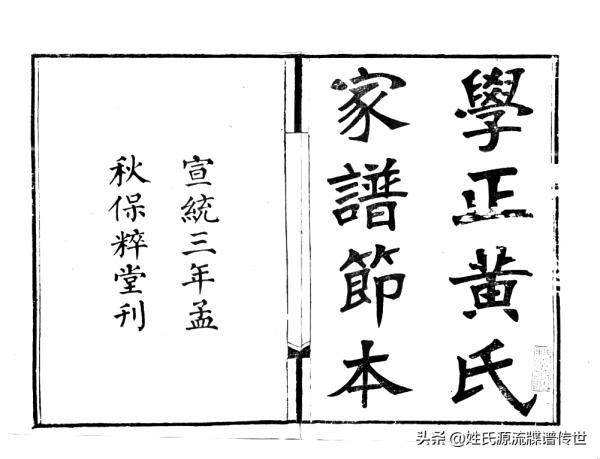 學正黃氏
家譜節本
宣統三年孟
秋保粹堂刊
头条 @姓氏源流牒谱传世